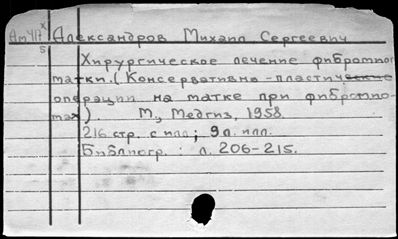 Ам417 х Александров Михаил Сергеевич
5
Хирургическое лечение фибромио
матки. (Консервативно-пластические
операции на матке при фибромио-
мах). М., Медгиз, 1958.
216 стр. с илл.; 9 л. илл.
Библиогр.: л. 206-215.